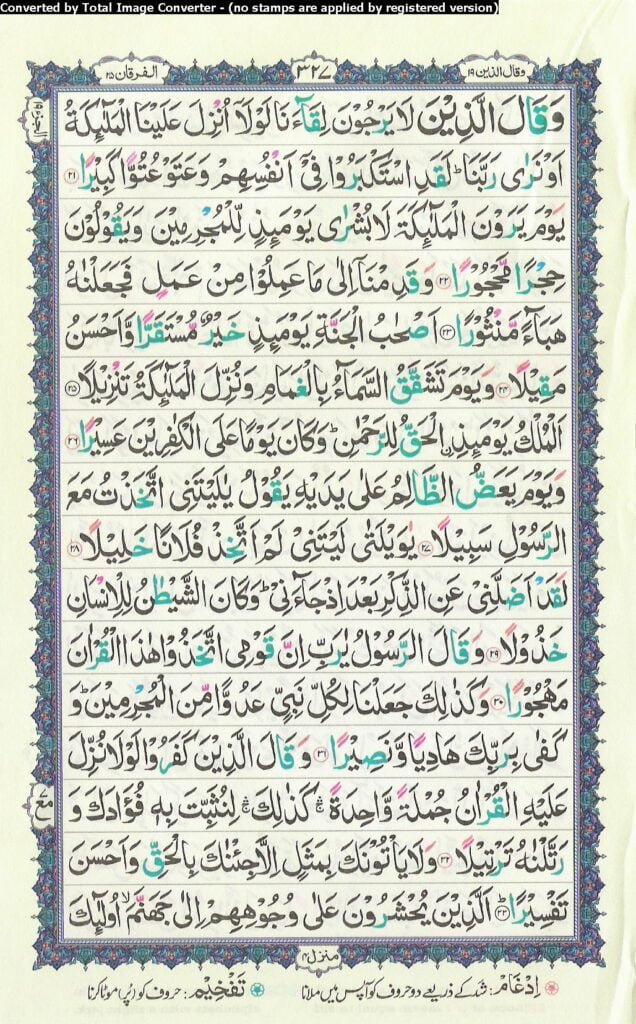 Converted by Total Image Converter - (no stamps are applied by registered version)
الفرقان ٢٥ ٣٢٧ وقال الذين ١٩
وَقَالَ الَّذِيْنَ لَا يَرْجُوْنَ لِقَآءَنَا لَوْلَاۤ اُنْزِلَ عَلَيْنَا الْمَلٰٓىِٕكَةُ
اَوْ نَرٰى رَبَّنَا ؕ لَقَدِ اسْتَكْبَرُوْا فِيْۤ اَنْفُسِهِمْ وَعَتَوْ عُتُوًّا كَبِيْرًا ٢١
يَوْمَ يَرَوْنَ الْمَلٰٓىِٕكَةَ لَا بُشْرٰى يَوْمَىِٕذٍ لِّلْمُجْرِمِيْنَ وَيَقُوْلُوْنَ
حِجْرًا مَّحْجُوْرًا ٢٢ وَقَدِمْنَاۤ اِلٰى مَا عَمِلُوْا مِنْ عَمَلٍ فَجَعَلْنٰهُ
هَبَآءً مَّنْثُوْرًا ٢٣ اَصْحٰبُ الْجَنَّةِ يَوْمَىِٕذٍ خَيْرٌ مُّسْتَقَرًّا وَّاَحْسَنُ
مَقِيْلًا ٢٤ وَيَوْمَ تَشَقَّقُ السَّمَآءُ بِالْغَمَامِ وَنُزِّلَ الْمَلٰٓىِٕكَةُ تَنْزِيْلًا ٢٥
اَلْمُلْكُ يَوْمَىِٕذِ ِۨالْحَقُّ لِلرَّحْمٰنِ ؕ وَكَانَ يَوْمًا عَلَى الْكٰفِرِيْنَ عَسِيْرًا ٢٦
وَيَوْمَ يَعَضُّ الظَّالِمُ عَلٰى يَدَيْهِ يَقُوْلُ يٰلَيْتَنِى اتَّخَذْتُ مَعَ
الرَّسُوْلِ سَبِيْلًا ٢٧ يٰوَيْلَتٰى لَيْتَنِيْ لَمْ اَتَّخِذْ فُلَانًا خَلِيْلًا ٢٨
لَقَدْ اَضَلَّنِيْ عَنِ الذِّكْرِ بَعْدَ اِذْ جَآءَنِيْ ؕ وَكَانَ الشَّيْطٰنُ لِلْاِنْسَانِ
خَذُوْلًا ٢٩ وَقَالَ الرَّسُوْلُ يٰرَبِّ اِنَّ قَوْمِى اتَّخَذُوْا هٰذَا الْقُرْاٰنَ
مَهْجُوْرًا ٣٠ وَكَذٰلِكَ جَعَلْنَا لِكُلِّ نَبِيٍّ عَدُوًّا مِّنَ الْمُجْرِمِيْنَ ؕ وَ
كَفٰى بِرَبِّكَ هَادِيًا وَّنَصِيْرًا ٣١ وَقَالَ الَّذِيْنَ كَفَرُوْا لَوْلَا نُزِّلَ
عَلَيْهِ الْقُرْاٰنُ جُمْلَةً وَّاحِدَةً ۛ كَذٰلِكَ ۛ لِنُثَبِّتَ بِهٖ فُؤَادَكَ وَ
رَتَّلْنٰهُ تَرْتِيْلًا ٣٢ وَلَا يَاْتُوْنَكَ بِمَثَلٍ اِلَّا جِئْنٰكَ بِالْحَقِّ وَاَحْسَنَ
تَفْسِيْرًا ٣٣ اَلَّذِيْنَ يُحْشَرُوْنَ عَلٰى وُجُوْهِهِمْ اِلٰى جَهَنَّمَ ۙ اُولٰٓىِٕكَ
منزل ٤
اِدْغَام: شد کے ذریعے دو حروف کو آپس میں ملانا تَفْخِيْم: حروف کو (پُر) موٹا کرنا